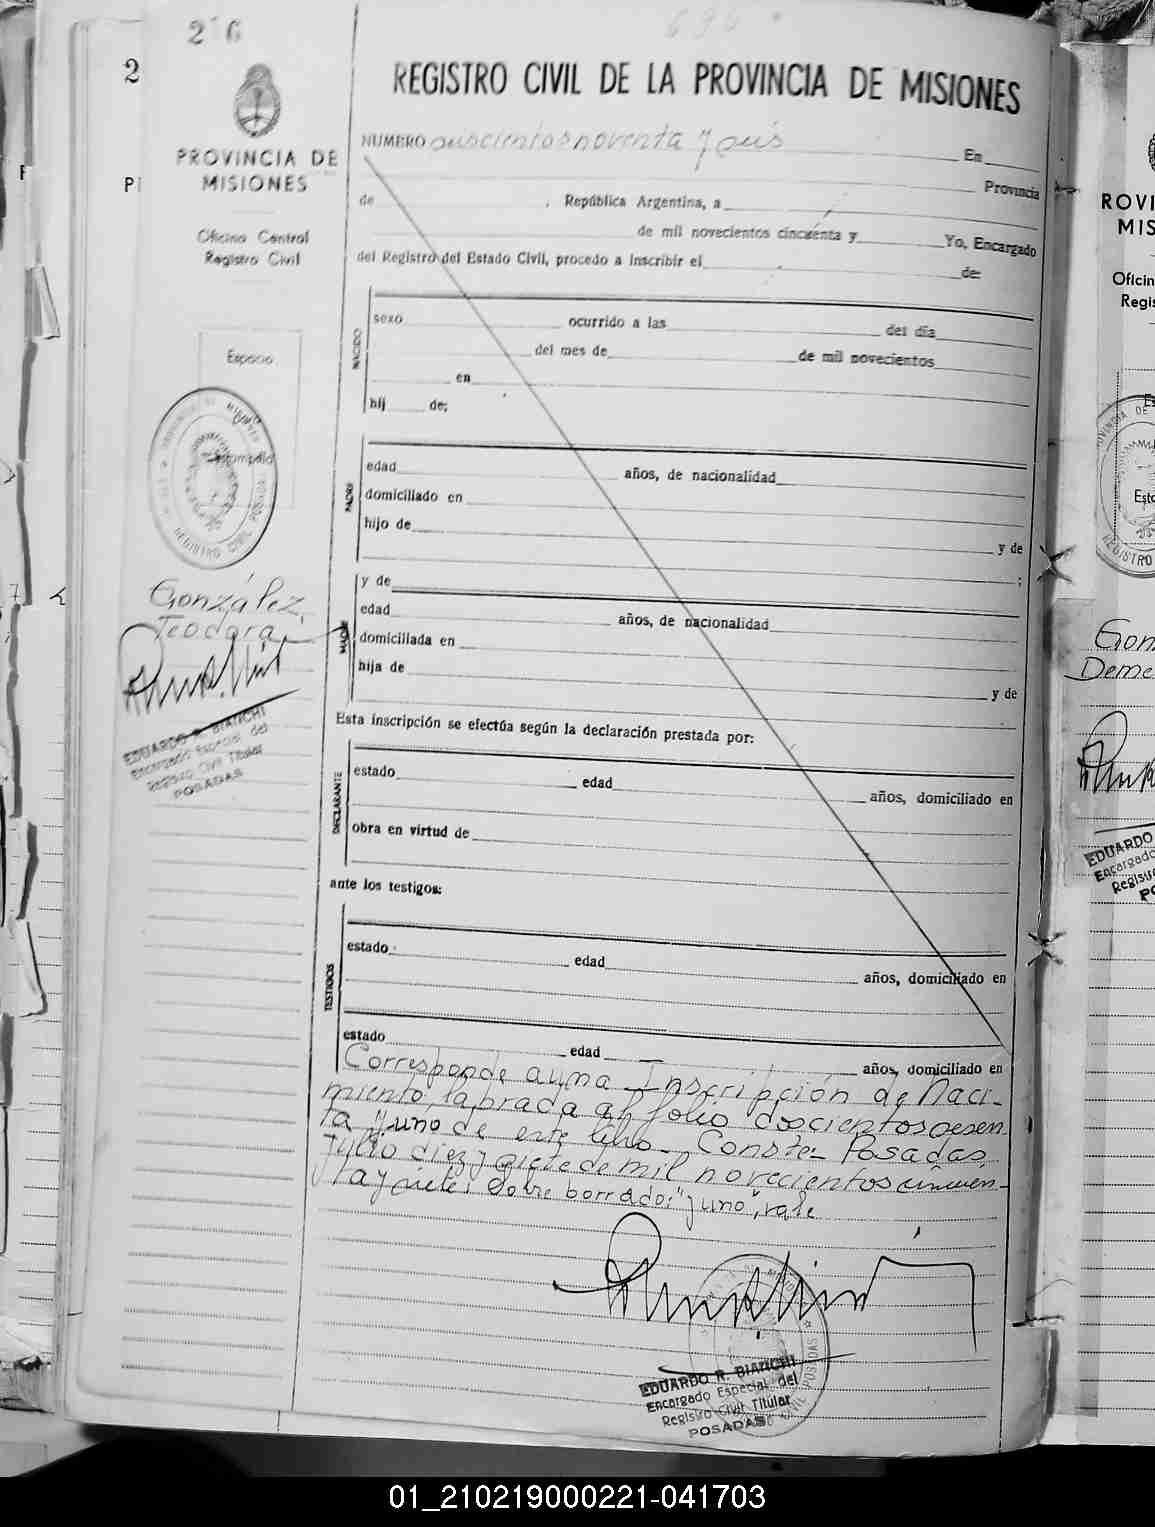 2 6
696
2
PROVINCIA DE
MISIONES
Oficina Central
Registro Civil
Espacio
Estampilla
González,
Teodora
EDUARDO R. BIANCHI
Encargado Especial del
Registro Civil Titular
POSADAS
REGISTRO CIVIL DE LA PROVINCIA DE MISIONES
NUMERO seiscientos noventa y seis En
Provincia
de , República Argentina, a
de mil novecientos cincuenta y Yo, Encargado
del Registro del Estado Civil, procedo a inscribir el de:
NACIDO
sexo ocurrido a las del día
del mes de de mil novecientos
en
hij de;
PADRE
edad años, de nacionalidad
domiciliado en
hijo de y de
;
y de
MADRE
edad años, de nacionalidad
domiciliada en
hija de y de
Esta inscripción se efectúa según la declaración prestada por:
DECLARANTE
estado edad años, domiciliado en
obra en virtud de
ante los testigos:
TESTIGOS
estado edad años, domiciliado en
estado edad años, domiciliado en
Corresponde a una Inscripción de Naci-
miento, labrada al folio doscientos sesen
ta y uno de este libro.- Conste.- Posadas,
Julio diez y siete de mil novecientos cincuen-
ta y siete: Sobre borrado: "y uno", vale
EDUARDO R. BIANCHI
Encargado Especial del
Registro Civil Titular
POSADAS
ROVI
MIS
Oficin
Regis
Gon
Deme
EDUARDO
Encargado
Regis
PO
01_210219000221-041703